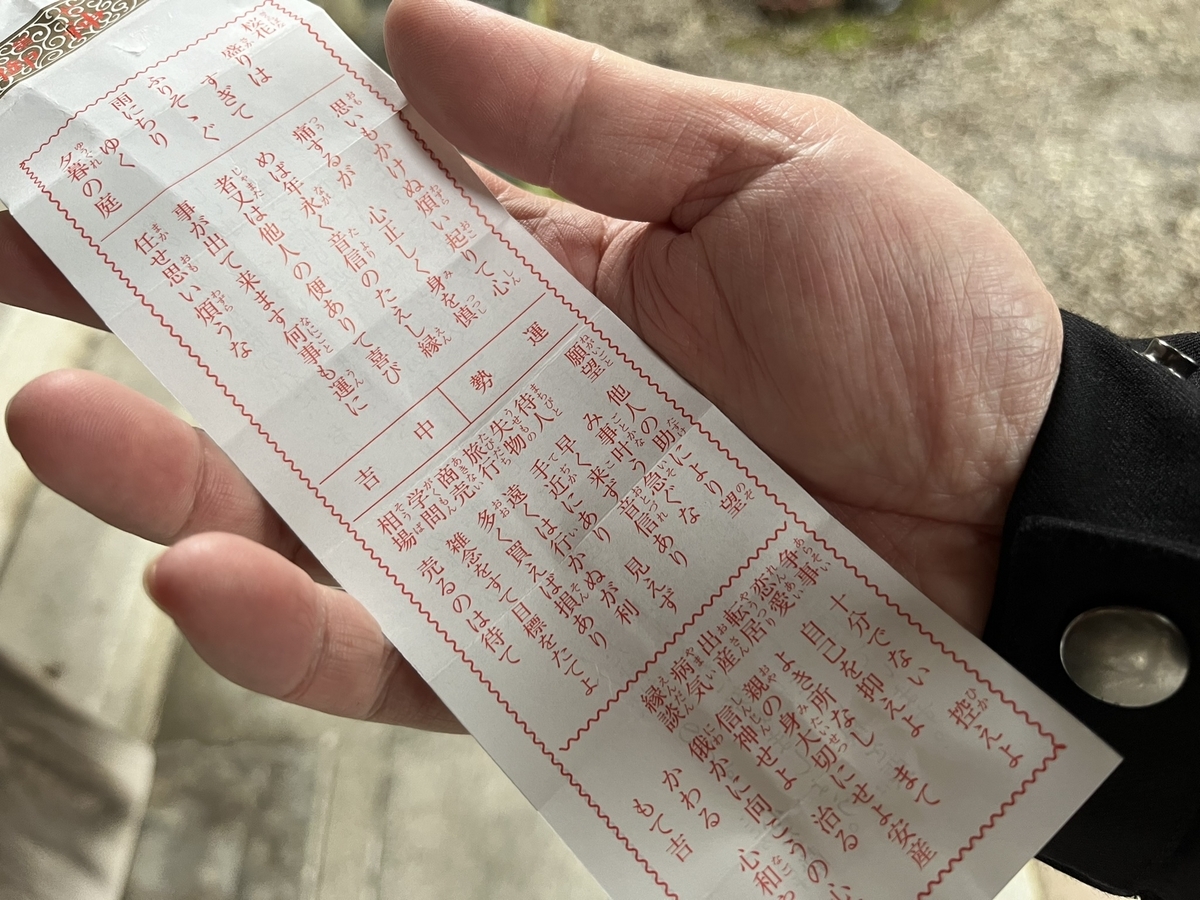 桜花
盛りは
すぎて
ふりそゝぐ
雨にちり
ゆく
夕暮の庭
思いもかけぬ煩い起りて心
痛するが 心正しく身を慎
めば年永く音信のたえし縁
者又は他人の便ありて喜び
事が出て来ます何事も運に
任せ思い煩うな
運勢
中吉
願望 他人の助により望
み事叶う急ぐな
待人 早く来ず音信あり
失物 手近にあり 見えず
旅行 遠くは行かぬが利
商売 多く買えば損あり
学問 雑念をすて目標をたてよ
相場 売るのは待て
争事 十分でない 控えよ
恋愛 自己を抑えよ
転居 よき所なし まて
出産 親の身大切にせよ安産
病気 信神せよ 治る
縁談 俄かに向こうの心
かわる 心和
もて吉